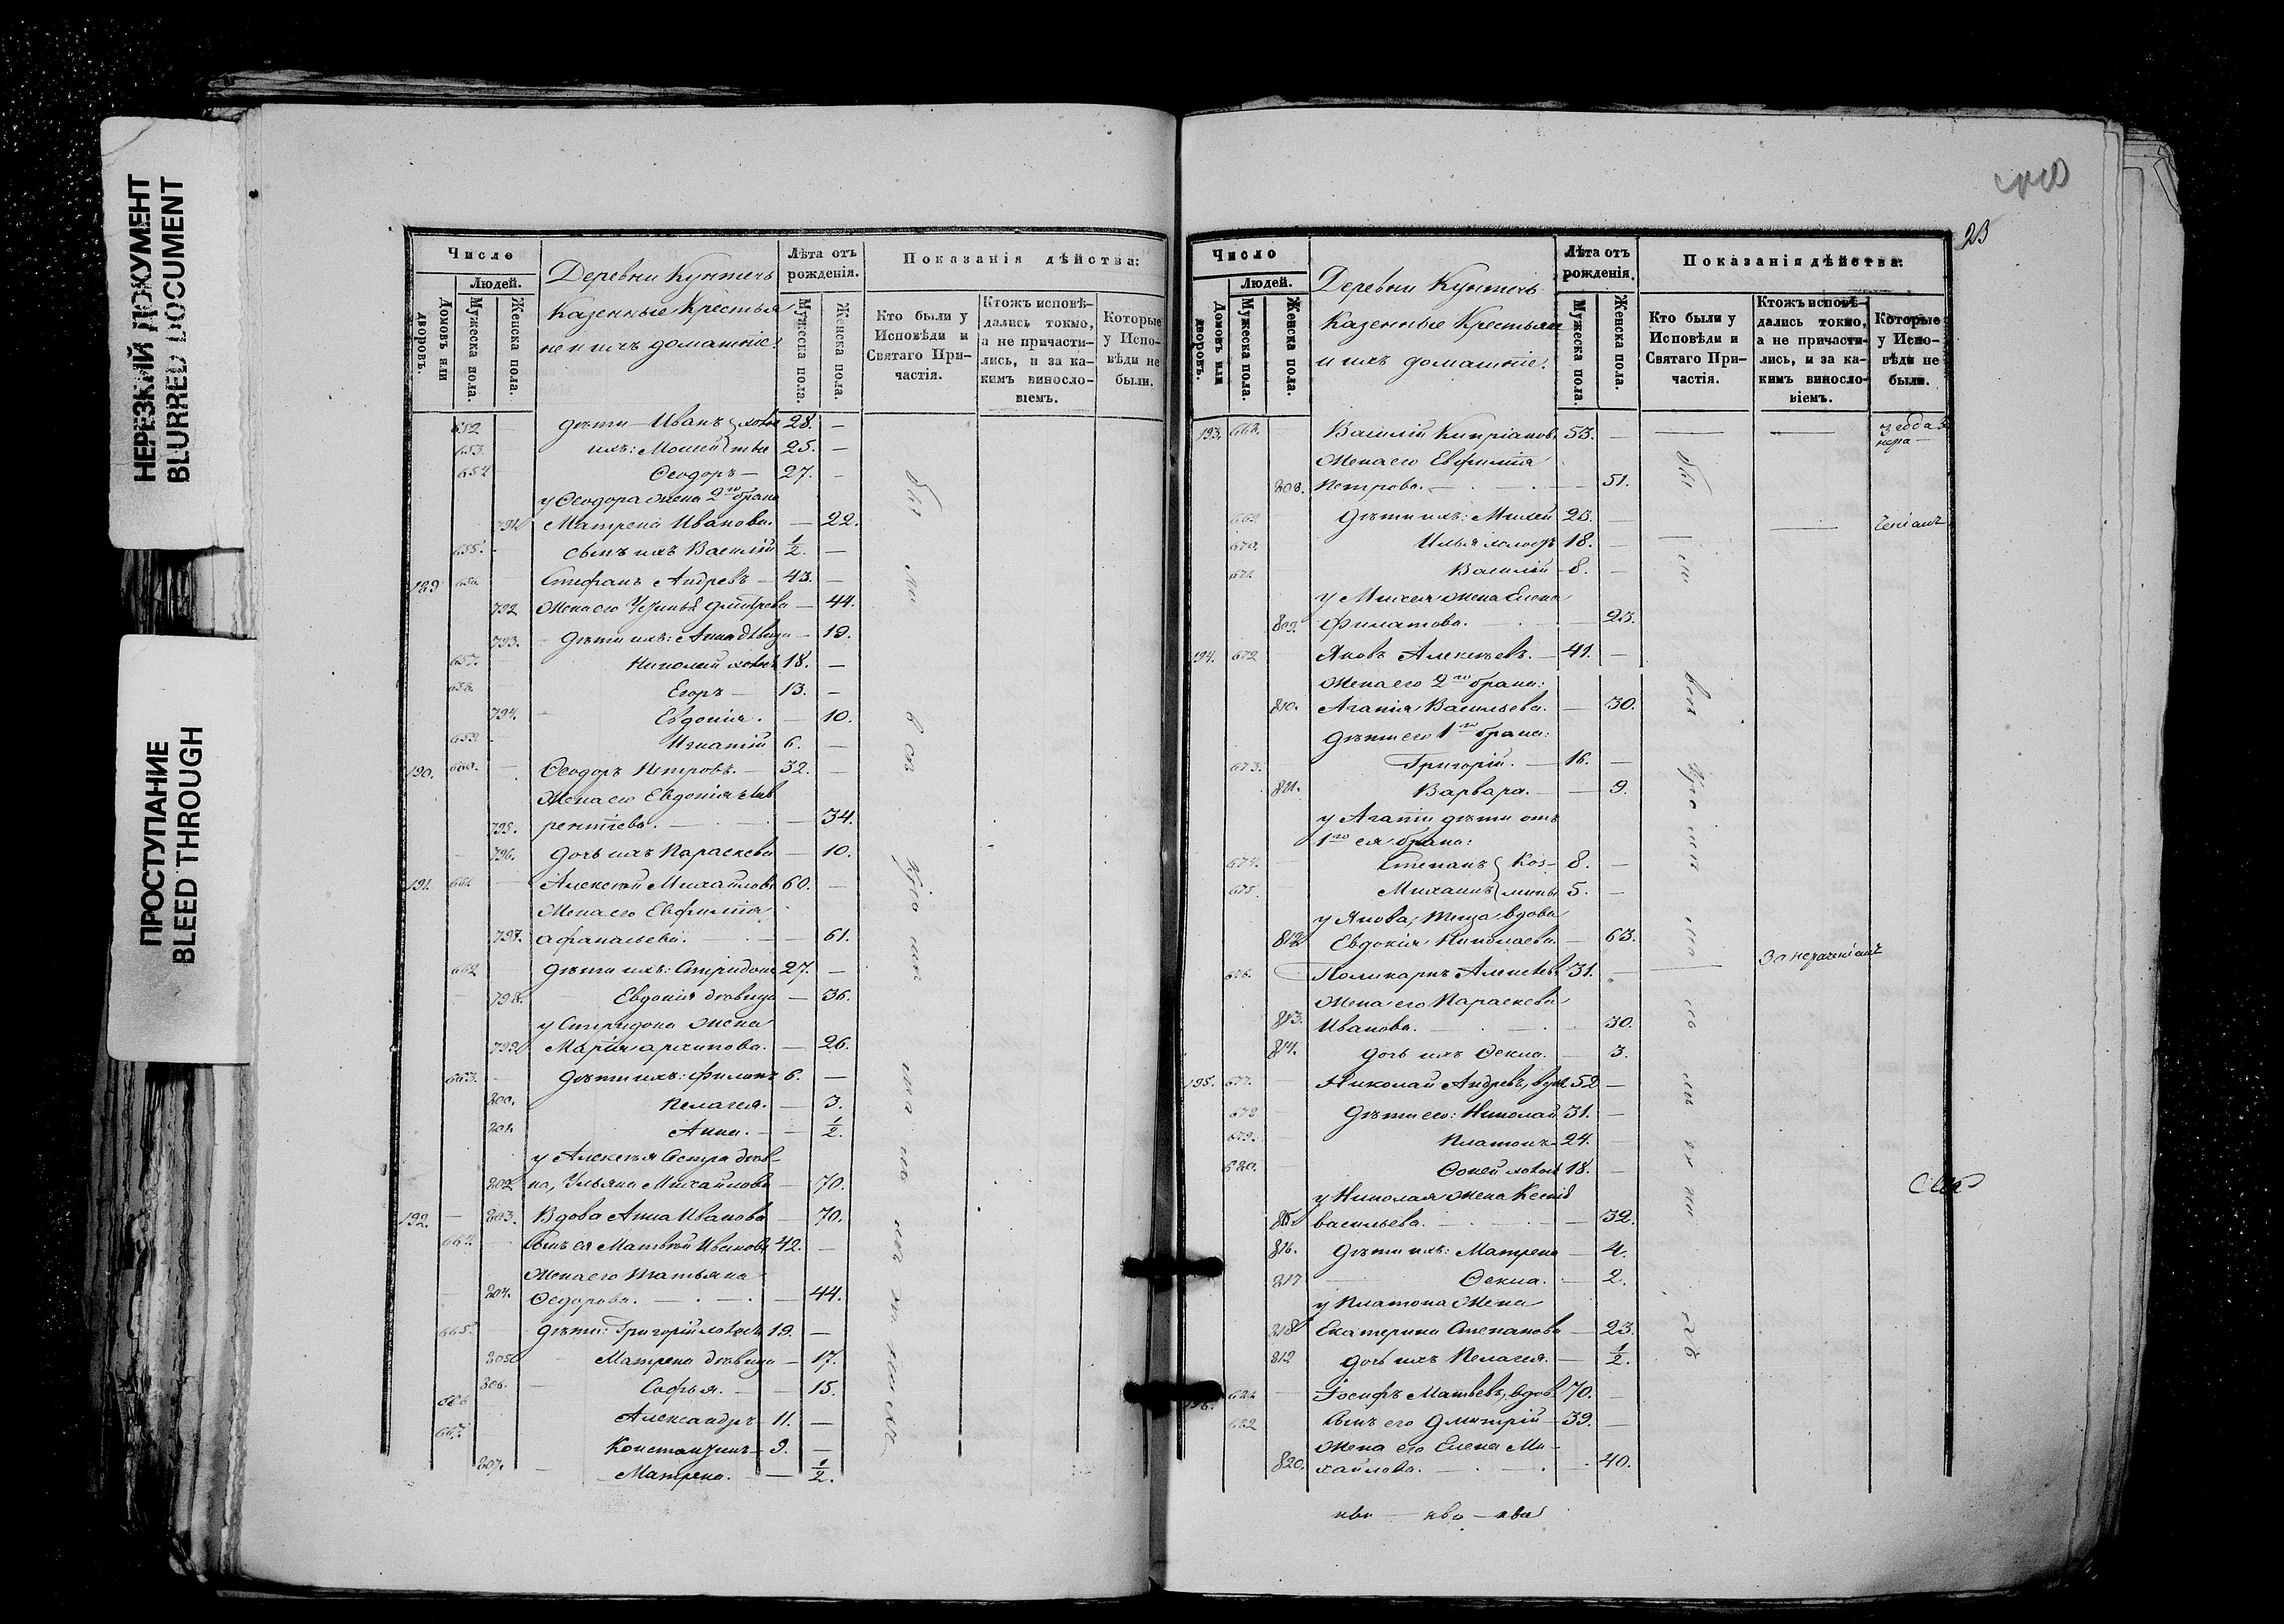 НЕРЕЗКИЙ ДОКУМЕНТ
BLURRED DOCUMENT
ПРОСТУПАНИЕ
BLEED THROUGH
Число
Людей.
Домовъ или дворовъ.
Мужеска пола.
Женска пола.
Деревни Кунтечь
Казенные Крестья
не и ихъ домашніе:
Лѣта отъ рожденія.
Мужеска пола.
Женска пола.
Показанія дѣйства:
Кто были у Исповѣди и Святаго Причастія.
Ктожъ исповѣдались токмо, а не причастились, и за какимъ винословіемъ.
Которые у Исповѣди не были.
652 дѣти Иванъ 28. —
653 ихъ: Моисей 25. —
654 Ѳеодоръ — 27. —
у Ѳеодора жена 2го брака
791 Матрена Иванова. — 22.
655. сынъ ихъ Василій 1/2. —
189 656. Стефанъ Андревъ — 43. —
792 Жена его Устинья Дмитрева — 44.
793. дѣти ихъ: Анна дѣвица — 19.
657. Николай холостъ 18. —
658. Егоръ — 13. —
794. Евдокія. — 10.
659. Игнатій 6. —
190. 660. Ѳеодоръ Петровъ. — 32. —
Жена его Евдокія Лав
795. рентіева. — 34.
796. дочь ихъ Параскева — 10.
191. 661 Алексѣй Михайловъ 60. —
Жена его Евфимія
797. Афанасьева. — 61.
662 дѣти ихъ: Спиридонъ 27. —
798. Евдокія дѣвица — 36.
у Спиридона жена
799 Марія Архипова. — 26.
663. дѣти ихъ: Филипъ 6. —
800. Пелагея. — 3.
801. Анна. — 1/2.
у Алексѣя сестра дѣв-
802 ка, Ульяна Михайлова — 70.
192. — 803. Вдова Анна Иванова — 70.
664 Сынъ ея Матвѣй Ивановъ 42. —
Жена его Татьяна
804. Ѳедорова. — 44.
665. дѣти: Григорій холостъ 19. —
805 Матрена дѣвица — 17.
806. Софья. — 15.
666 Александръ 11. —
667. Константинъ — 9. —
807. Матрена. — 1/2.
23
Число
Людей.
Домовъ или дворовъ.
Мужеска пола.
Женска пола.
Деревни Кунтечь
Казенные Крестьяне
и ихъ домашніе:
Лѣта отъ рожденія.
Мужеска пола.
Женска пола.
Показанія дѣйства:
Кто были у Исповѣди и Святаго Причастія.
Ктожъ исповѣдались токмо, а не причастились, и за какимъ винословіемъ.
Которые у Исповѣди не были.
193. 668. Василій Кипріановъ 53. — 3 года за нера—
Жена его Евфимія
808. Петрова. — 51.
669 дѣти ихъ: Михей 23. — ченіемъ
670. Илья холостъ 18. —
671 Василій — 8. —
у Михея жена Елена
809. Филатова. — 23.
194. 672 Яковъ Алексѣевъ. — 41. —
Жена его 2го брака:
810. Агапія Васильева. — 30.
дѣти его 1го брака:
673. Григорій. — 16. —
811. Варвара. — 9.
у Агапіи дѣти отъ
1го ея брака:
674. Степанъ 8. —
675. Михаилъ 5. —
у Якова, теща вдова
812 Евдокія Николаева — 63.
676. Поликарпъ Алексѣевъ 31. — за нераченіемъ
Жена его Параскева
813. Иванова. — 30.
814. дочь ихъ Ѳекла. — 3.
195. 677. Николай Андревъ, вдов 52 —
678 дѣти его: Николай 31. —
679. Платонъ 24. —
680. Фокей холостъ 18. —
у Николая жена Ксенія
815 Васильева. — 32.
816. дѣти ихъ: Матрена — 4.
817 Ѳекла. — 2.
у Платона жена
818 Екатерина Степанова — 23.
819 дочь ихъ Пелагея. — 1/2.
196. 681 Іосифъ Матвѣевъ, вдов. 70. —
682 Сынъ его Дмитрій — 39. —
Жена его Елена Ми-
820. хайлова. — 40.